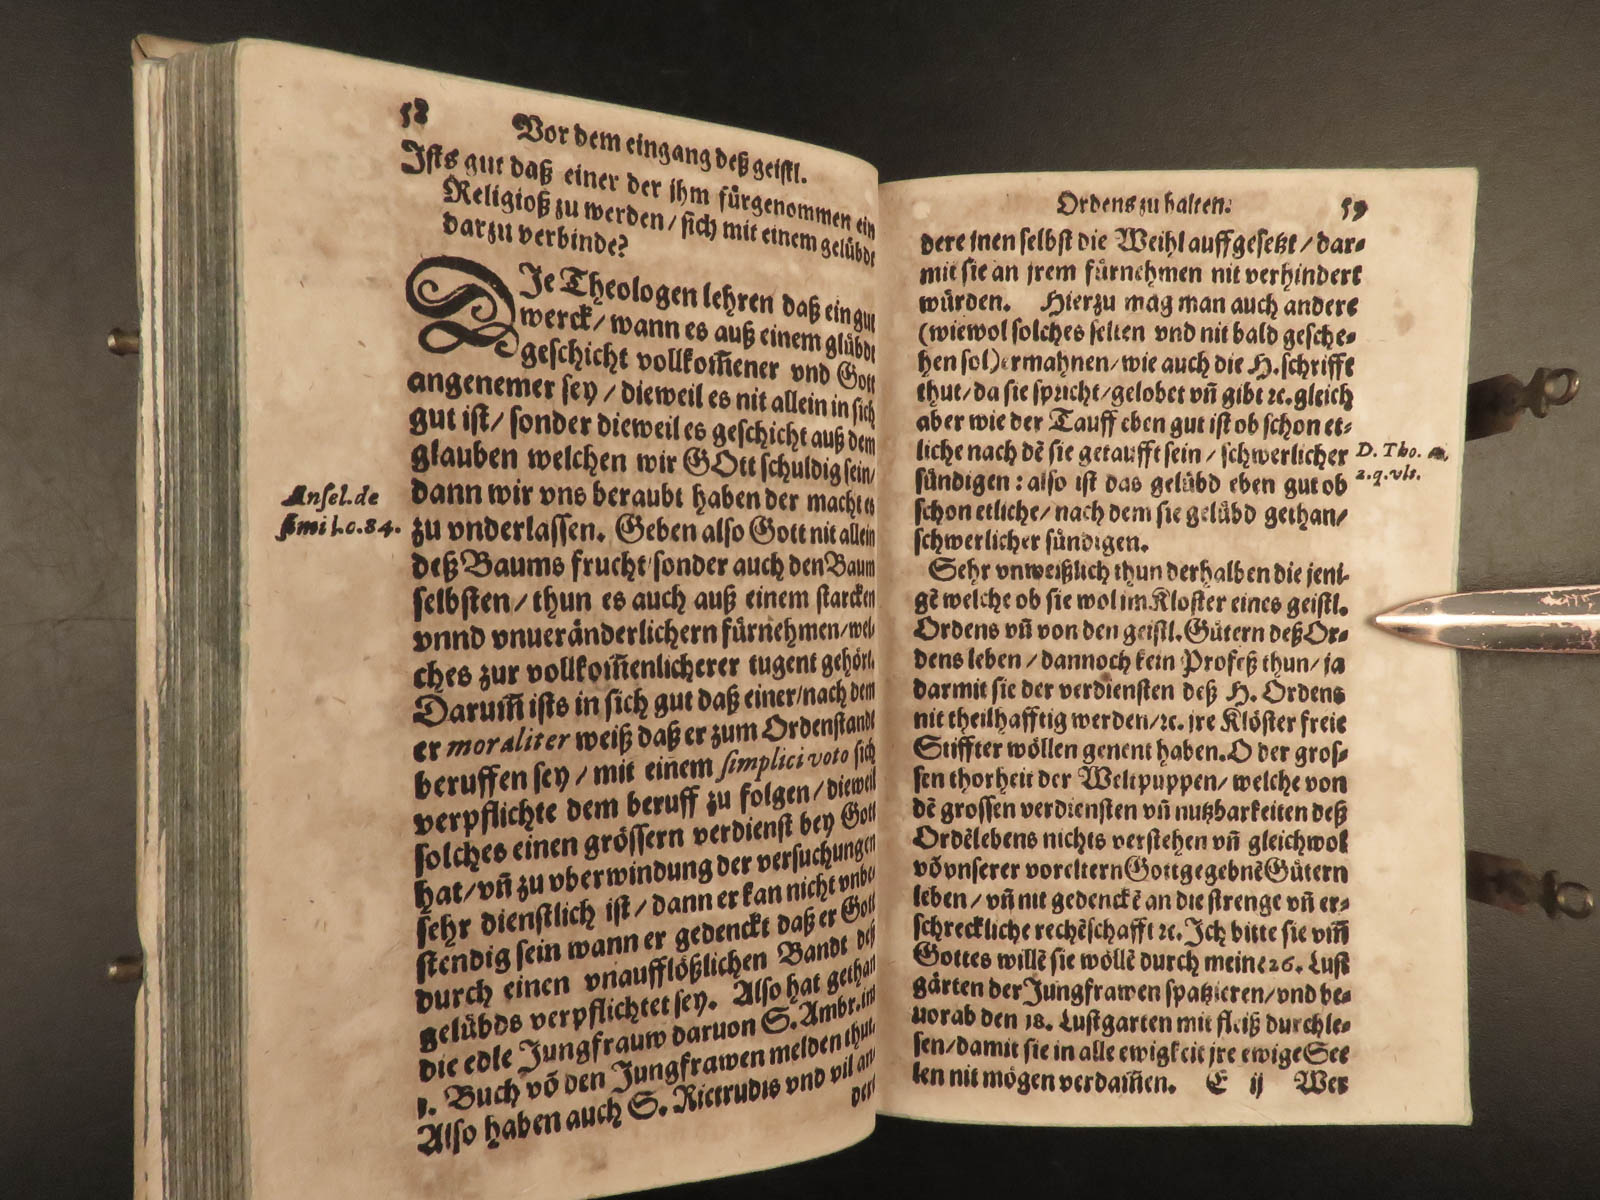 58
Vor dem eingang deß geistl.
Ists gut daß einer der jhm fürgenommen ein
Religioß zu werden / sich mit einem gelübdt
darzu verbinde?
DJe Theologen lehren daß ein gut
werck / wann es auß einem glübdt
geschicht vollkom̃ener vnd Gott
angenemer sey / dieweil es nit allein in sich
gut ist / sonder dieweil es geschicht auß dem
glauben welchen wir GOtt schuldig sein /
dann wir vns beraubt haben der macht es
zu vnderlassen. Geben also Gott nit allein
deß Baums frucht sonder auch den Baum
selbsten / thun es auch auß einem starcken
vnnd vnueränderlichern fürnehmen / wel-
ches zur vollkom̃enlicherer tugent gehört.
Darum̃ ists in sich gut daß einer / nach dem
er moraliter weiß daß er zum Ordenstandt
beruffen sey / mit einem simplici voto sich
verpflichte dem beruff zu folgen / dieweil
solches einen grössern verdienst bey Gott
hat / vn̄ zu vberwindung der versuchungen
sehr dienstlich ist / dann er kan nicht vnbe-
stendig sein wann er gedenckt daß er Gott
durch einen vnaufflößlichen Bandt deß
gelübds verpflichtet sey. Also hat gethan
die edle Jungfrauw daruon S. Ambr. im
1. Buch vō den Jungfrawen melden thut.
Also haben auch S. Rictrudis vnd vil an-
dere
Ansel. de
simil. c. 84.
Ordens zu halten.
59
dere inen selbst die Weihl auffgesetzt / dar-
mit sie an jrem fürnehmen nit verhindert
würden. Hierzu mag man auch andere
(wiewol solches selten vnd nit bald gesche-
hen sol) ermahnen / wie auch die H. schrifft
thut / da sie spricht / gelobet vn̄ gibt ꝛc. gleich
aber wie der Tauff eben gut ist ob schon et-
liche nach dē sie getaufft sein / schwerlicher
sündigen : also ist das gelübd eben gut ob
schon etliche / nach dem sie gelübd gethan /
schwerlicher sündigen.
D. Tho.
2. q. vlt.
Sehr vnweißlich thun derhalben die jeni-
gē welche ob sie wol im Kloster eines geistl.
Ordens vn̄ von den geistl. Gütern deß Or-
dens leben / dannoch kein Profeß thun / ja
darmit sie der verdiensten deß H. Ordens
nit theilhafftig werden / ꝛc. jre Klöster freie
Stiffter wöllen genent haben. O der gros-
sen thorheit der Weltpuppen / welche von
dē grossen verdiensten vn̄ nutzbarkeiten deß
Ordēlebens nichts verstehen vn̄ gleichwol
vō vnserer voreltern Gott gegebnē Gütern
leben / vn̄ nit gedenckē an die strenge vn̄ er-
schreckliche rechēschafft ꝛc. Ich bitte sie vm̃
Gottes willē sie wöllē durch meine 26. Lust
gärten der Jungfrawen spatzieren / vnd be-
uorab den 18. Lustgarten mit fleiß durchle-
sen / damit sie in alle ewigkeit jre ewige See
len nit mögen verdam̃en. E ij Wer